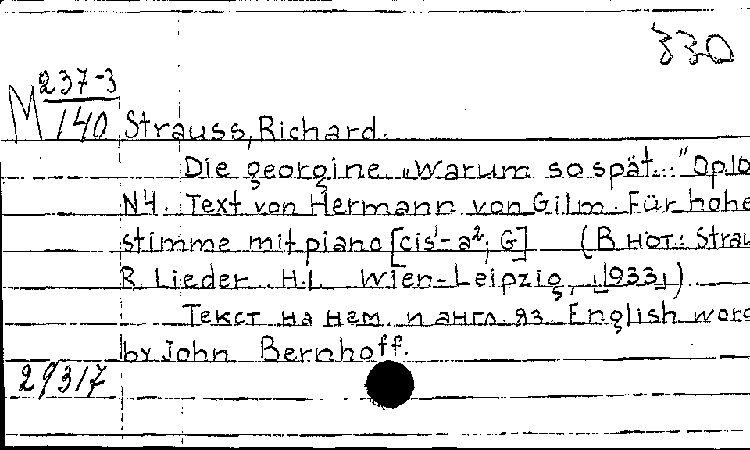 330
М 237-3
140
Strauss, Richard.
Die georgine „Warum so spät..." Op.10
N4. Text von Hermann von Gilm. Für hohe
stimme mit piano [cis¹-a², G] (В нот.: Strau
R. Lieder. H.I. Wien-Leipzig, [1933])
Текст на нем. и англ. яз. English word
by John Bernhoff.
29317